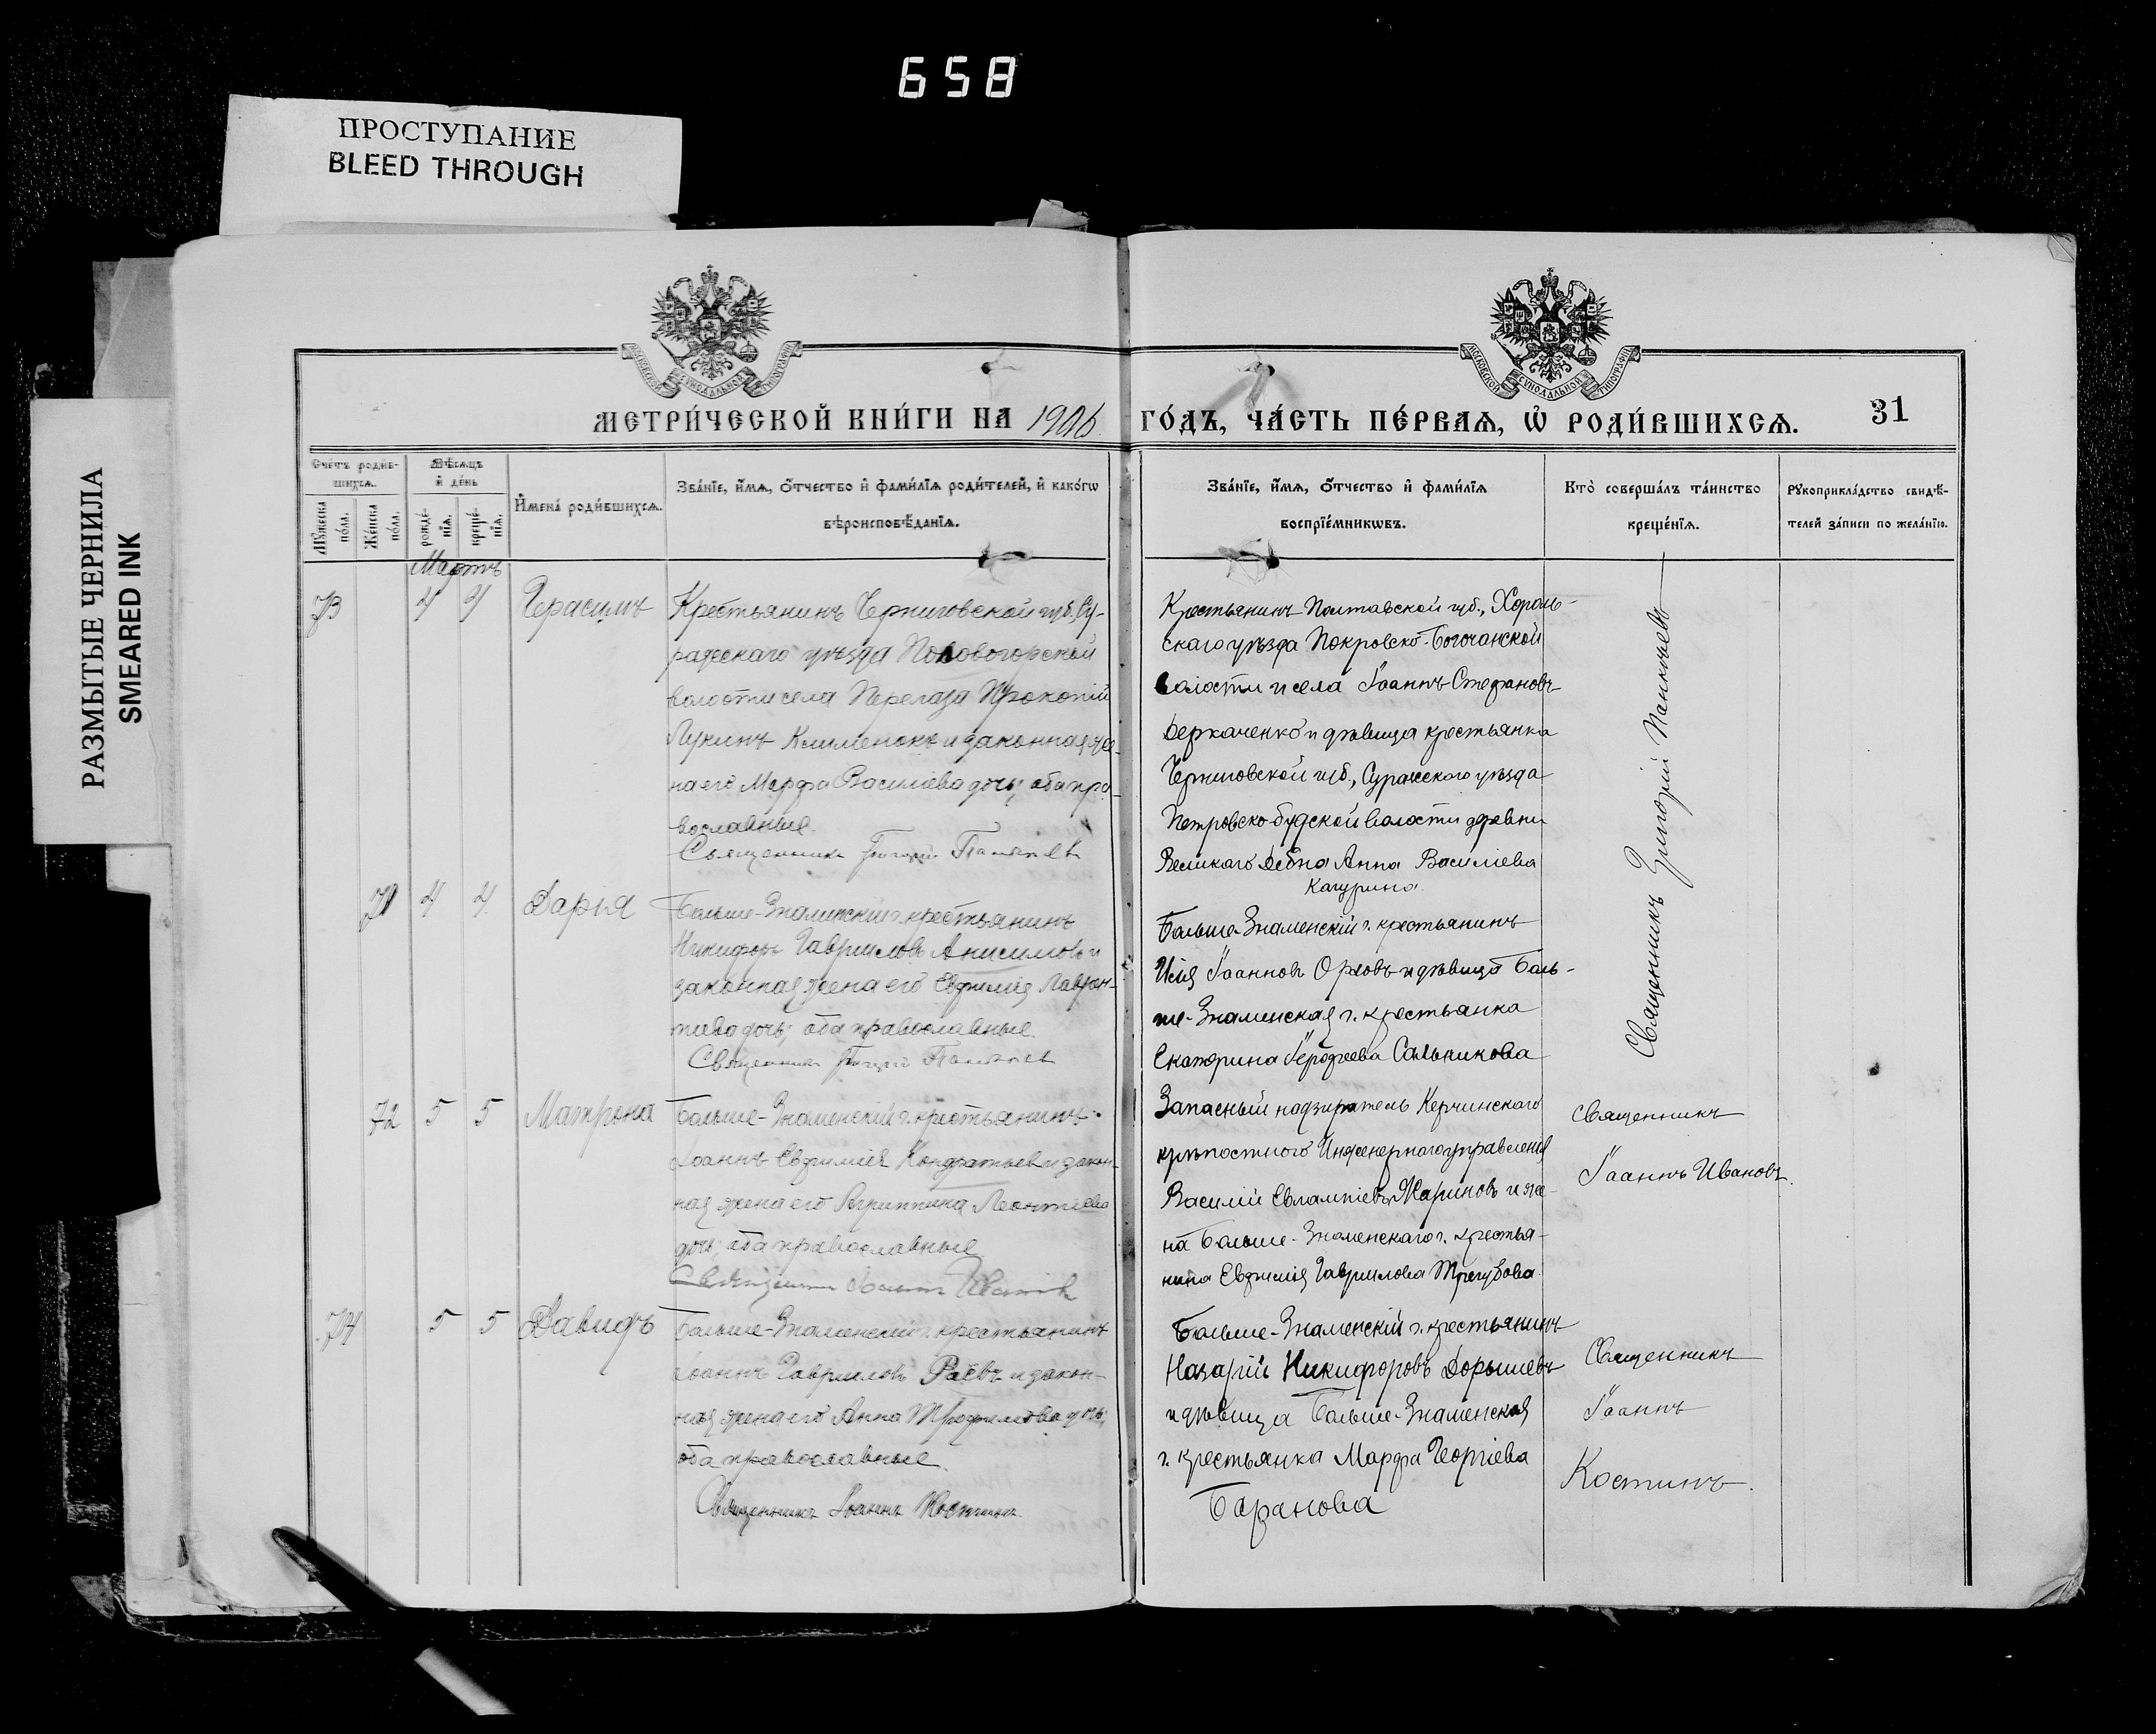 658
ПРОСТУПАНИЕ
BLEED THROUGH
РАЗМЫТЫЕ ЧЕРНИЛА
SMEARED INK
МОСКОВСКОЙ СѴНОДАЛЬНОЙ ТИПОГРАФІИ
МОСКОВСКОЙ СѴНОДАЛЬНОЙ ТИПОГРАФІИ
МЕТРИ́ЧЕСКОЙ КНИ́ГИ НА 1906 ГО́ДЪ, ЧА́СТЬ ПЕ́РВАѦ, Ѡ҆ РОДИ́ВШИХСѦ.
31
Счетъ роди́вшихсѧ.
Мꙋ́жеска по́ла.
Же́нска по́ла.
Мѣ́сѧцъ и҆ де́нь
рожде́нїѧ.
креще́нїѧ.
И҆мена̀ роди́вшихсѧ.
Зва́нїе, и҆́мѧ, ѻ҆́тчество и҆ фами́лїѧ роди́телей, и҆ како́гѡ
вѣроисповѣ́данїѧ.
Зва́нїе, и҆́мѧ, ѻ҆́тчество и҆ фами́лїѧ
воспрїе́мникѡвъ.
Кто̀ соверша́лъ та́инство
креще́нїѧ.
Рꙋкоприкла́дство свидѣ́-
телей за́писи по жела́нїю.
Мартъ
73 4 4 Герасимъ
Крестьянинъ Черниговской губ. Су-
ражскаго уѣзда Поповогорской
волости села Перелаза Прокопій
Лукинъ Клименокъ и законная же-
на его Марфа Василіева дочь; оба пра-
вославные.
Священникъ Григорій Панкѣевъ
Крестьянинъ Полтавской губ., Хороль-
скаго уѣзда Покровско-Богочанской
волости и села Іоаннъ Стефановъ
Деркаченко и дѣвица крестьянка
Черниговской губ., Суражскаго уѣзда
Петровско-Будской волости деревни
Великаго Анна Василіева
Качурина.
Священникъ Григорій Панкѣевъ
71 4 4 Дарія
Больше-Знаменскій г. крестьянинъ
Никифоръ Гавриловъ Анисимовъ и
законная жена его Евфимія Лаврен-
тіева дочь; оба православные.
Священникъ Григорій Панкѣевъ
Больше-Знаменскій г. крестьянинъ
Илія Іоанновъ Орловъ и дѣвица Боль-
ше-Знаменская г. крестьянка
Екатерина Сальникова
72 5 5 Матрона
Больше-Знаменскій г. крестьянинъ
Іоаннъ Евфиміевъ Кондратьев и закон-
ная жена его Агриппина Леонтіева
дочь; оба православные.
Священникъ Іоаннъ Ивановъ
Запасный надзиратель Керчинскаго
крѣпостного Инженернаго управленія
Василій Евлампіевъ Жариновъ и же-
на Больше-Знаменскаго г. крестья-
нина Евфимія Гаврилова Трегубова
Священникъ
Іоаннъ Ивановъ.
74 5 5 Давидъ
Больше-Знаменскій г. крестьянинъ
Іоаннъ Гавриловъ Раевъ и закон-
ная жена его Анна Трофимова дочь;
оба православные.
Священникъ Іоаннъ Костинъ
Больше-Знаменскій г. крестьянинъ
Назарій Никифоровъ Дорышевъ
и дѣвица Больше-Знаменская
г. крестьянка Марфа Георгіева
Баранова
Священникъ
Іоаннъ
Костинъ.